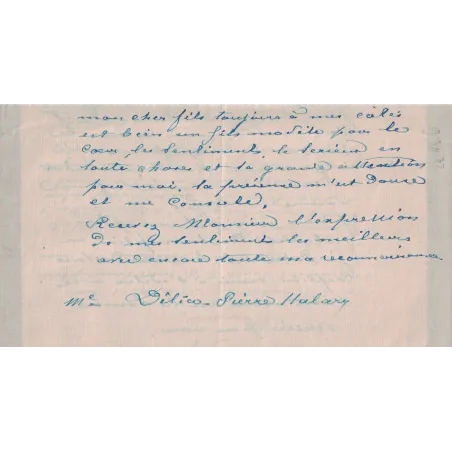 mon cher fils toujours à mes côtés
est bien un fils modèle pour le
cœur, les sentiments, le sérieux en
toute choses et sa grande attention
pour moi, sa présence m'est douce
et me console.
Recevez Monsieur l'expression
de mes sentiments les meilleurs
avec encore toute ma reconnaissance
Me Délico Pierre Halary